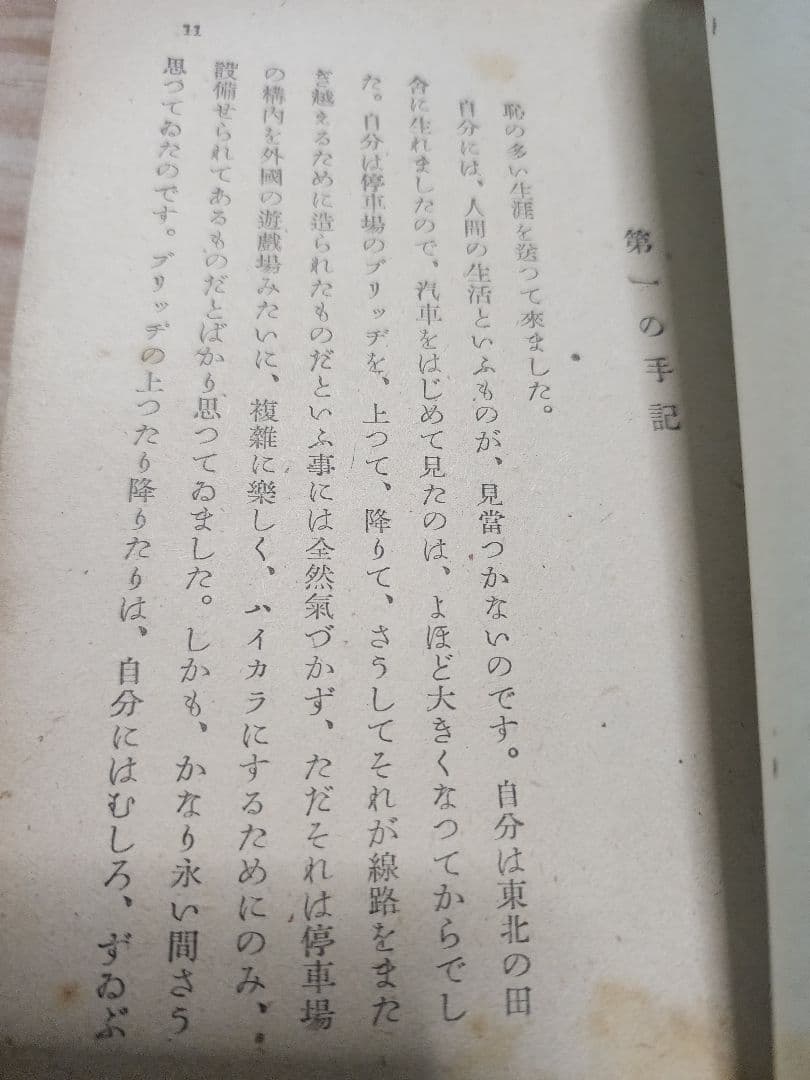 第一の手記
恥の多い生涯を送つて來ました。
自分には、人間の生活といふものが、見當つかないのです。自分は東北の田
舍に生れましたので、汽車をはじめて見たのは、よほど大きくなつてからでし
た。自分は停車場のブリッヂを、上つて、降りて、さうしてそれが線路をまた
ぎ越えるために造られたものだといふ事には全然氣づかず、ただそれは停車場
の構内を外國の遊戲場みたいに、複雜に樂しく、ハイカラにするためにのみ、
設備せられてあるものだとばかり思つてゐました。しかも、かなり永い間さう
思つてゐたのです。ブリッヂの上つたり降りたりは、自分にはむしろ、ずゐぶ
11